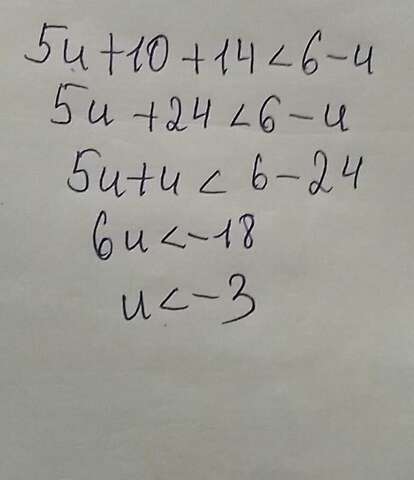 5u+10+14<6-u
5u+24<6-u
5u+u<6-24
6u<-18
u<-3